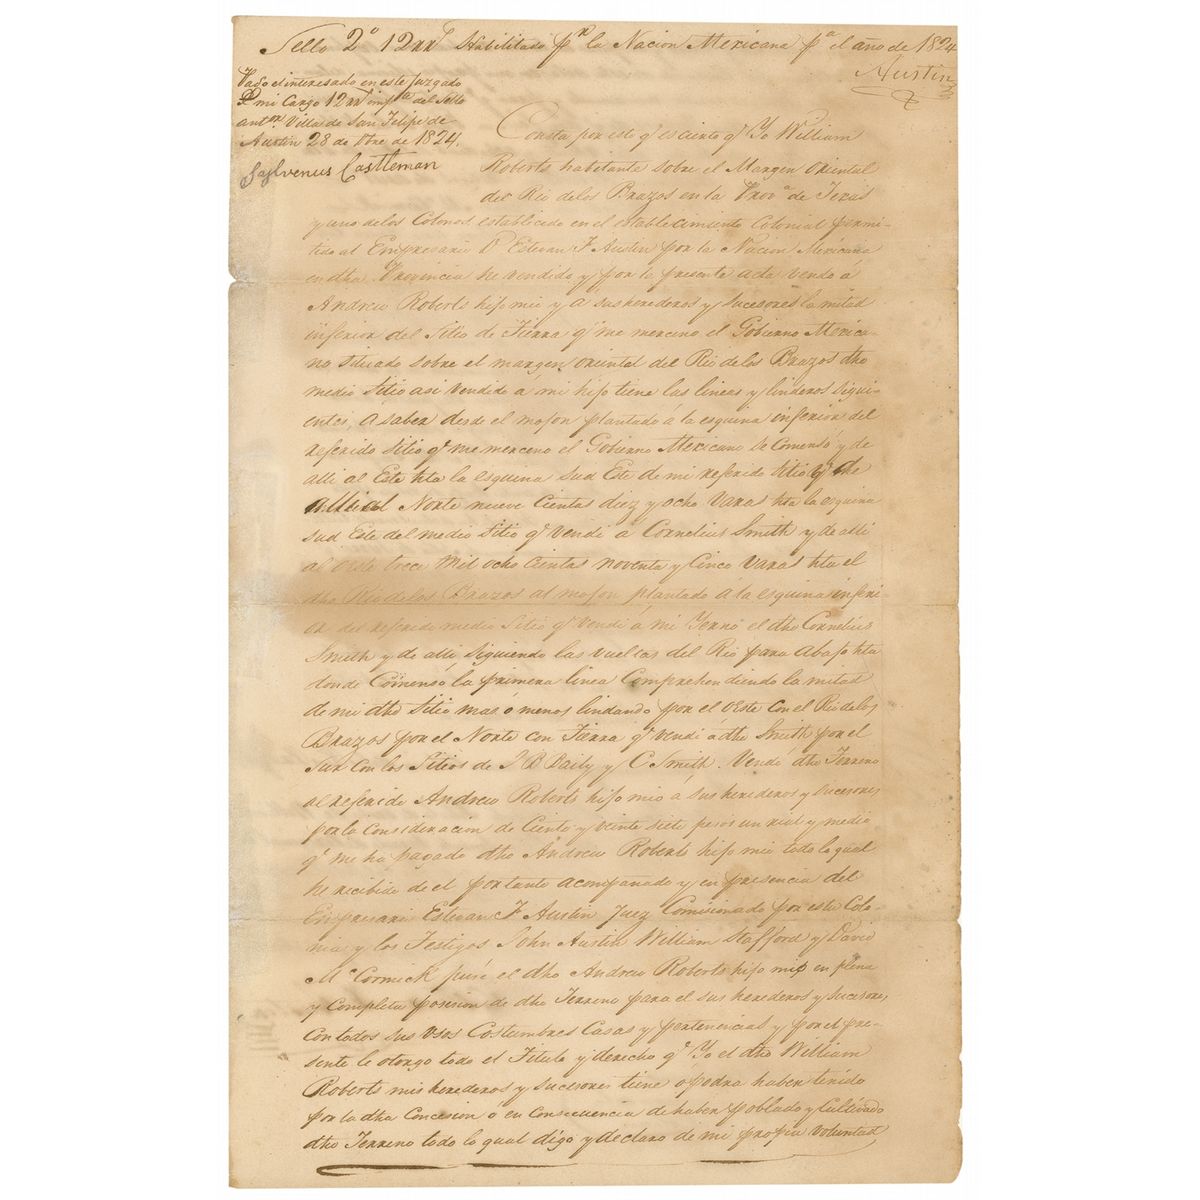 Sello 2º 12rrs Habilitado pr la Nacion Mexicana pa el año de 1824
Austin
Pagó el interesado en este Juzgado
de mi Cargo 12rrs impte del Sello
antrr Villa de San Felipe de
Austin 28 de Obre de 1824.
Saylvenus Castleman
Consta por este qe es cierto qe Yo William
Roberts habitante sobre el Margen Oriental
del Rio de los Brazos en la Prova de Texas
y uno de los Colonos establecido en el establecimiento Colonial permi-
tido al Empresario Dn Estevan F Austin por la Nacion Mexicana
en dha Provincia he vendido y por le presente acta vendo á
Andrew Roberts hifo mio y a sus herederos y sucesores la mitad
inferior del Sitio de Tierra qe me merceno el Gobierno Mexica-
no situado sobre el margen oriental del Rio de los Brazos dho
medio Sitio asi vendido á mi hifo tiene las lineas y linderos sigui-
entes, a saber desde el mofon plantado á la esquina inferior del
referido Sitio qe me merceno el Gobierno Mexicano se Comensó y de
alli al Este hta la esquina Sud Este de mi referido Sitio y de
alli al Norte nueve Cientas diez y ocho Varas hta la esquina
sud Este del medio Sitio qe vendi a Cornelius Smith y de alli
al oeste trece mil ocho Cientas noventa y Cinco Varas hta el
dho Rio de los Brazos al mofon plantado á la esquina inferi-
or del referido medio Sitio qe vendi á mi Yerno el dho Cornelius
Smith y de alli siguiendo las vueltas del Rio para abafo hta
donde Comensó la primera linea Comprehendiendo la mitad
de mi dho Sitio mas ó menos lindando por el oeste con el Rio de los
Brazos por el Norte con Tierra qe vendi á dho Smith por el
Sur Con los Sitios de J B Baily y C Smith. Vendo dho Terreno
al referido Andrew Roberts hifo mio á sus herederos y sucesores
por la Consideracion de Ciento y veinte siete pesos un rial y medio
qe me ha pagado dho Andrew Roberts hifo mio todo lo qual
he recibido de el por tanto acompañado y en presencia del
Empresario Estevan F. Austin Juez Comisionado por esta Colo-
nia y los Testigos John Austin William Stafford y David
McCormick puse el dho Andrew Roberts hifo mio en plena
y Completa posesion de dho Terreno para el sus herederos y sucesores,
Con todos sus usos Costumbres Casas y pertenencias y por el pre-
sente le otorgo todo el Titulo y derecho qe Yo el dho William
Roberts mis herederos y sucesores tiene ó podra haber tenido
por la dha Concesion ó en Consecuencia de haber poblado y Cultivado
dho Terreno todo lo qual digo y declaro de mi propia voluntad,